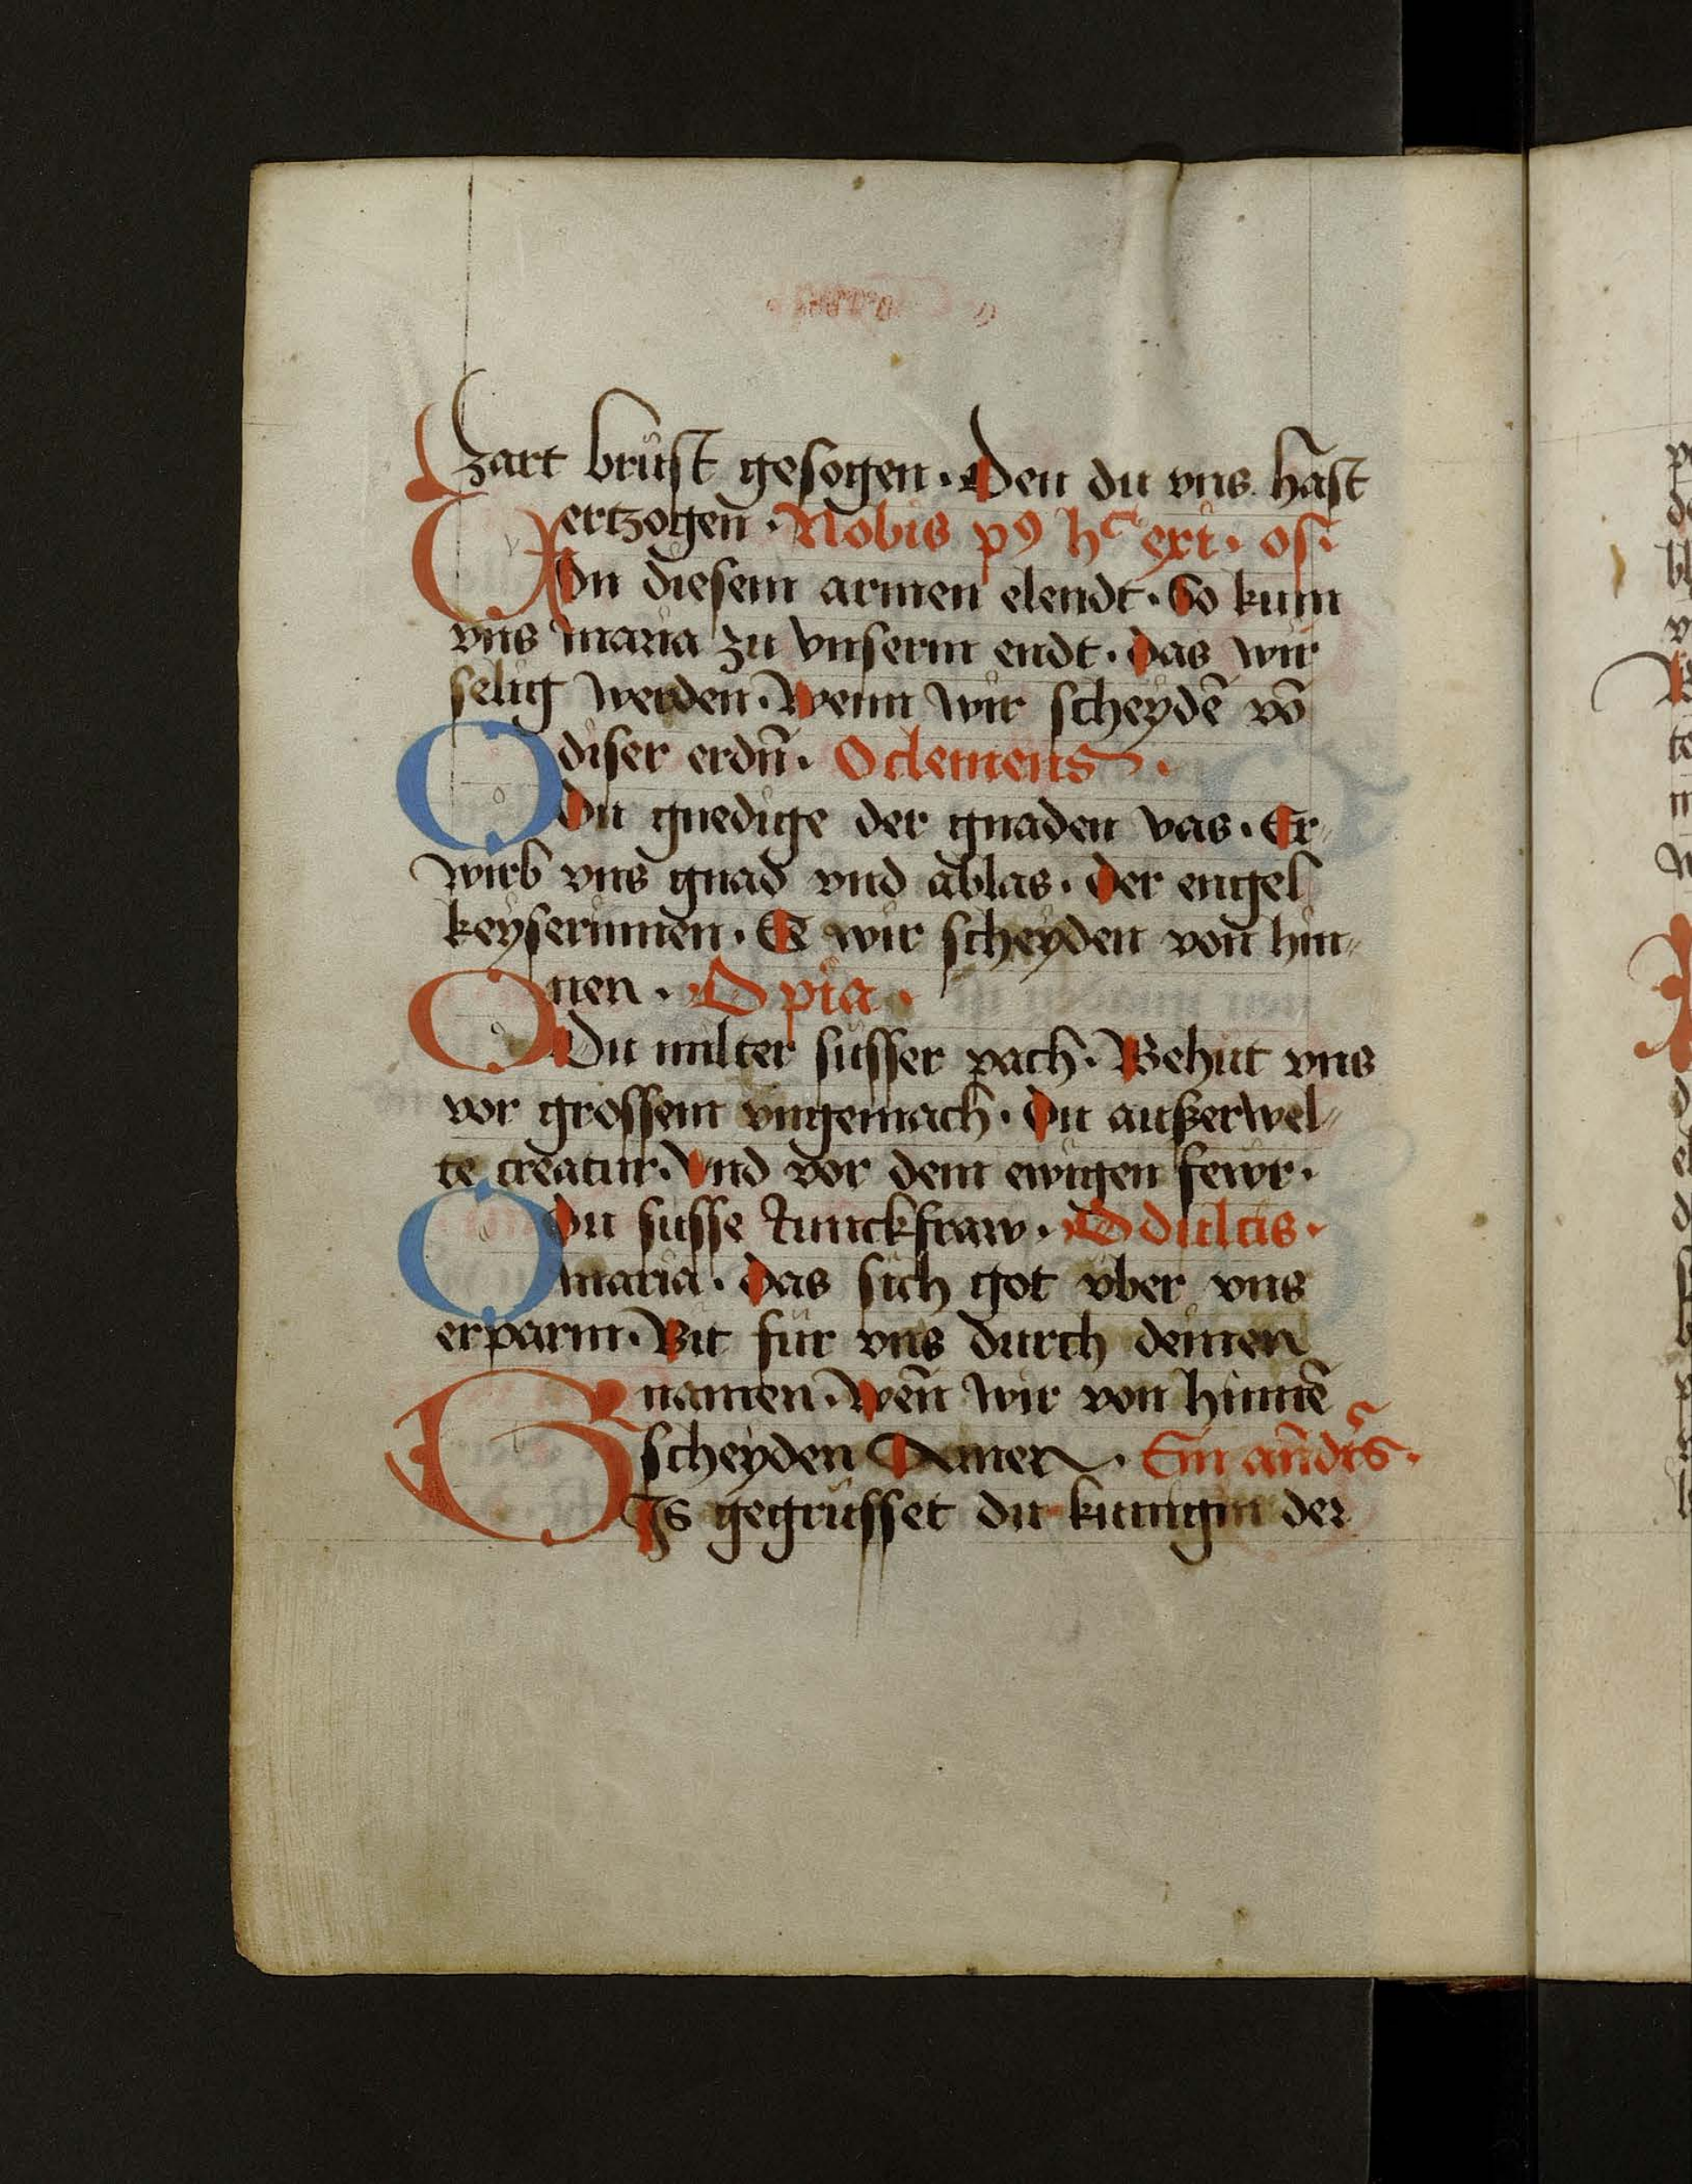 zart brüst gesogen. Den du vns hast
ertzogen. Nobis pꝰ hᶜ exi. os.
Von diesem armen elendt. So kum
vns maria zu vnserm endt. Das wir
selig werden. Wenn wir scheydē vō
diser erdn̄. O clemens.
O Du gnedige der gnaden vas. Er⸗
wirb vns gnad vnd ablas. Der engel
keyserinnen. Ee wir scheyden von hin⸗
nen. O pia.
O Du milter süsser pach. Behüt vns
vor grossem vngemach. Du außerwel⸗
te creatur. Vnd vor dem ewigen fewr.
Du süsse Junckfraw. O dulcis.
O maria. Das sich got vber vns
erparm. Bit für vns durch deinen
namen. Wen̄ wir von hinnē
scheyden Amen. Ein and̄rs.
GIs gegrüsset du künigin der